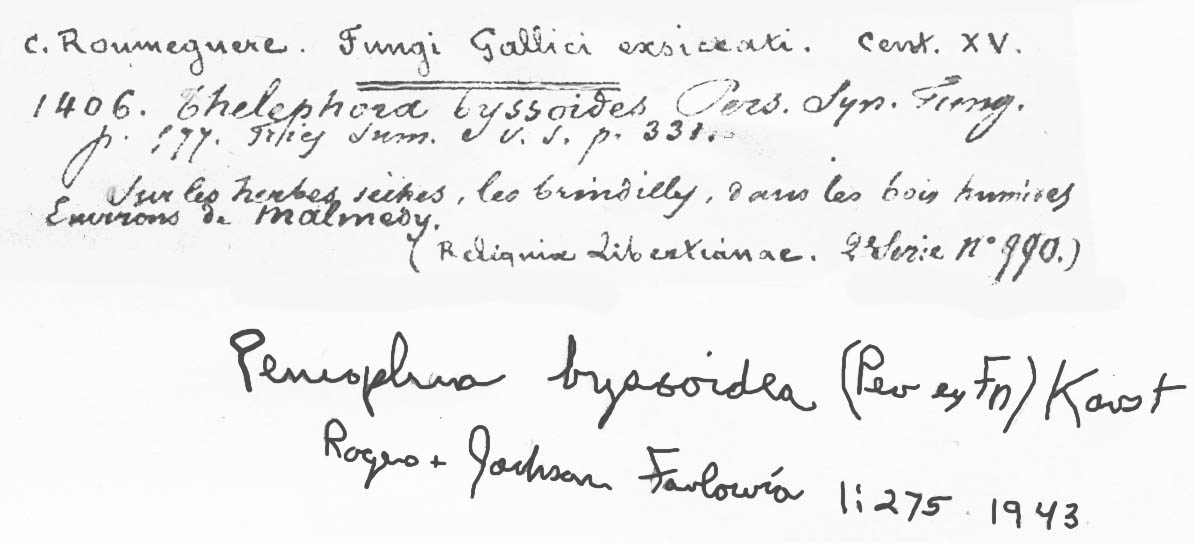 C. Roumeguere. Fungi Gallici exsiccati. Cent. XV.
1406. Thelephora byssoides Pers. Syn. Fung.
p. 577. Fries Sum. V. S. p. 331.
Sur les herbes sèches, les brindilles, dans les bois humides
Environs de Malmedy.
(Reliquiae Libertianae. 2e Serie N° 990.)
Peniophora byssoidea (Per ex Fr) Karst
Rogers + Jackson Farlowia 1:275. 1943